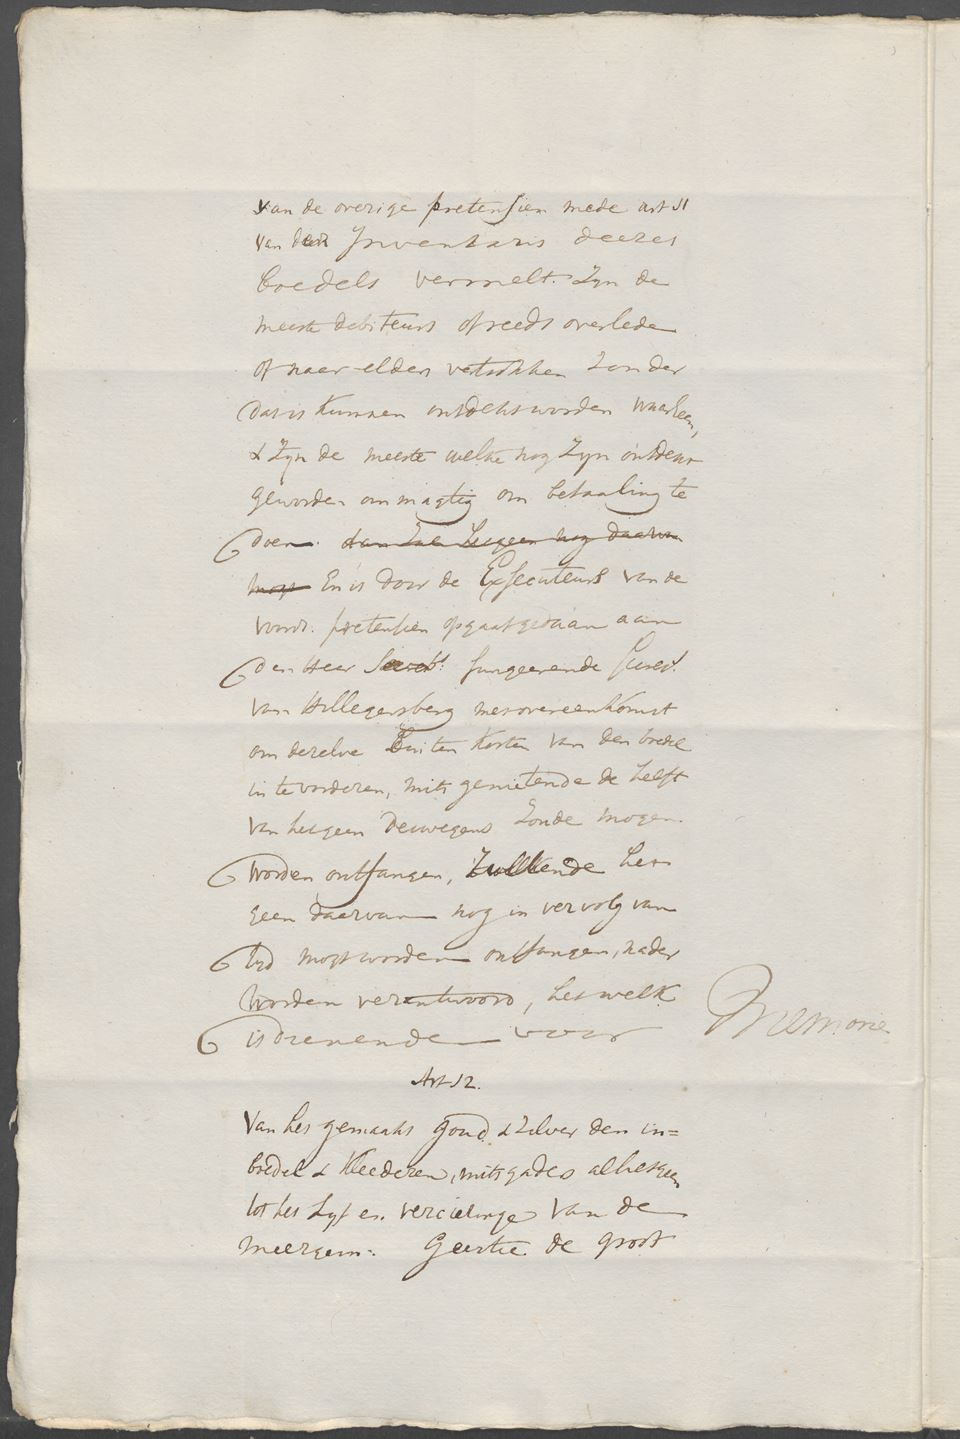 van de overige pretensien mede art 51
van den Inventaris deezes
boedels vermelt. Zyn de
meeste debiteurs of reeds overleden
of naar elders vertrokken zonder
dat is kunnen ontdekt worden waarheen,
& zyn de meeste welke nog zyn ontdekt
geworden onmagtig om betaaling te
doen. nog daarvan
mogt En is door de Exsecuteurs van de
voors. pretensien opgaaf gedaan aan
den Heer fungeerende Secrets.
van Hillegersberg met overeenkomst
om dezelve buiten kosten van den boedel
in te vorderen, mits genietende de helft
van hetgeen deswegens zoude mogen
worden ontfangen, Zullende het
geen daarvan nog in vervolg van
tyd mogt worden ontfangen, nader
worden verantwoord, het welk
is dienende voor Memorie
Art 52.
Van het gemaakt goud & zilver den in=
boedel & kleederen, mitsgaders al hetgeen
tot het Lyf en van de
meergem: Geertie de groot